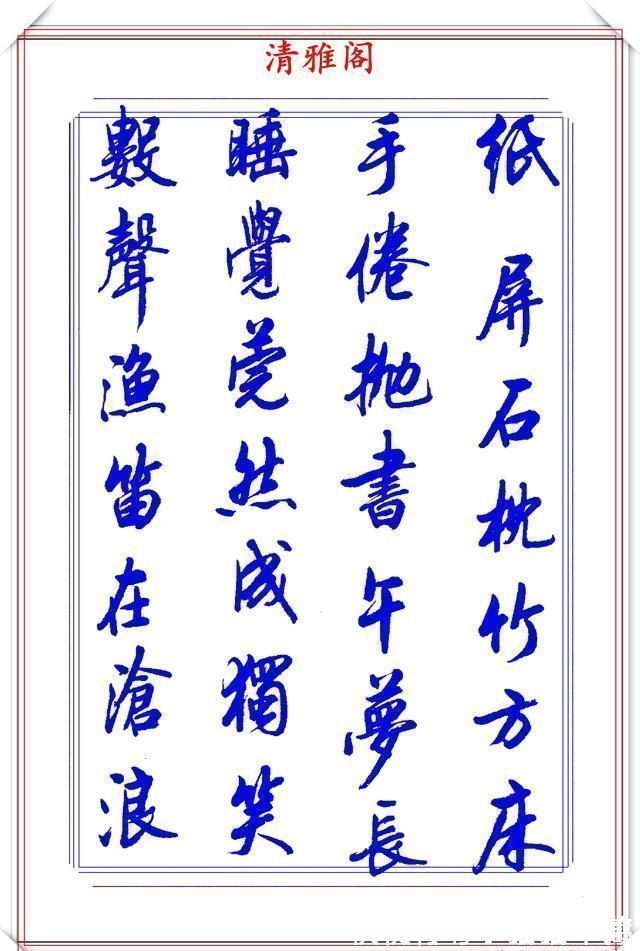 清雅阁
纸屏石枕竹方床
手倦抛書午夢長
睡覺莞然成獨笑
數聲漁笛在滄浪